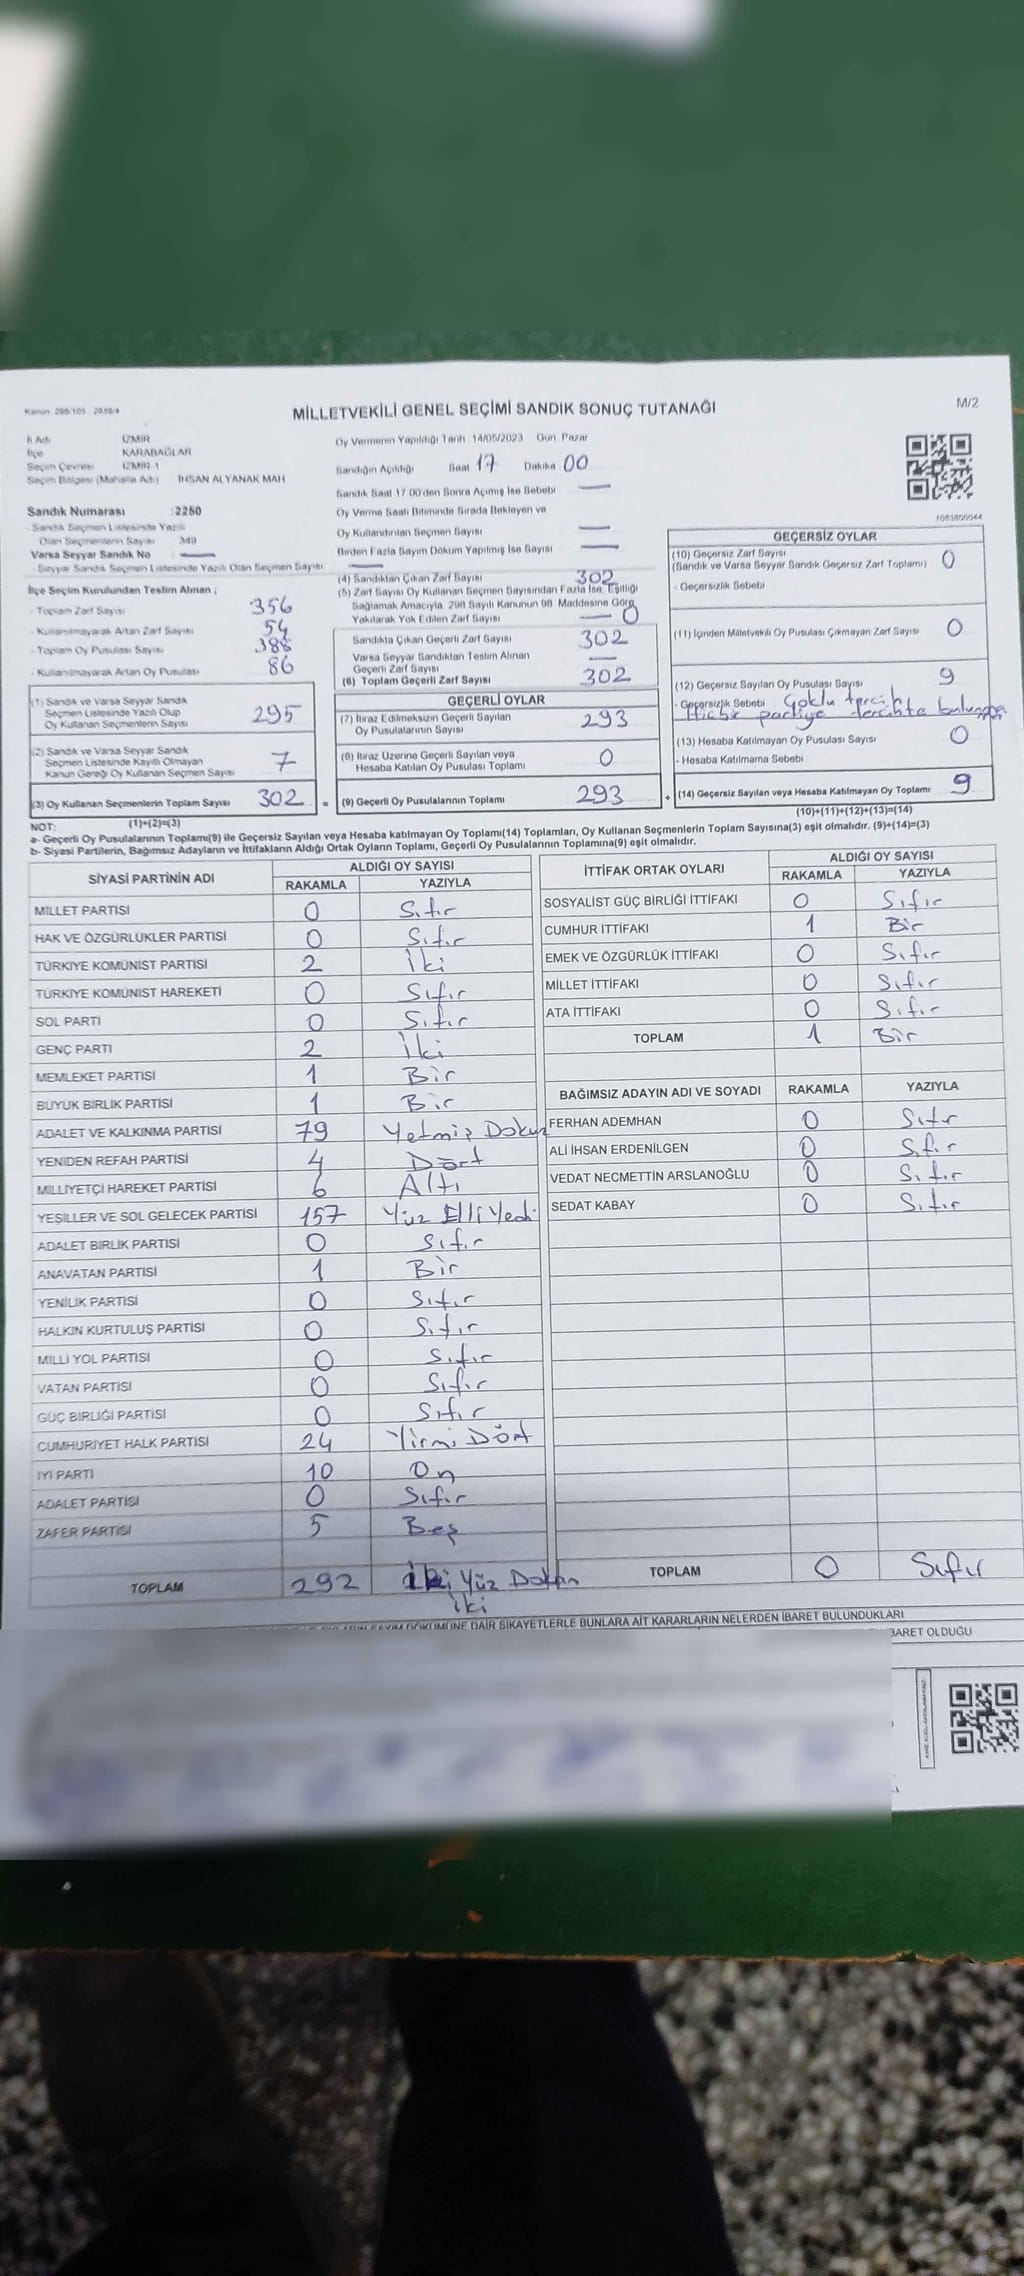 Kanun: 298/105 , 2839/4
MİLLETVEKİLİ GENEL SEÇİMİ SANDIK SONUÇ TUTANAĞI
M/2
İl Adı İZMİR
İlçe KARABAĞLAR
Seçim Çevresi İZMİR-1
Seçim Bölgesi (Mahalle Adı) İHSAN ALYANAK MAH
Sandık Numarası :2250
- Sandık Seçmen Listesinde Yazılı
Olan Seçmenlerin Sayısı 349
Varsa Seyyar Sandık No —
- Seyyar Sandık Seçmen Listesinde Yazılı Olan Seçmen Sayısı —
İlçe Seçim Kurulundan Teslim Alınan ;
- Toplam Zarf Sayısı 356
- Kullanılmayarak Artan Zarf Sayısı 54
- Toplam Oy Pusulası Sayısı 388
- Kullanılmayarak Artan Oy Pusulası 86
(1) Sandık ve Varsa Seyyar Sandık
Seçmen Listesinde Yazılı Olup
Oy Kullanan Seçmenlerin Sayısı 295
(2) Sandık ve Varsa Seyyar Sandık
Seçmen Listesinde Kayıtlı Olmayan
Kanun Gereği Oy Kullanan Seçmen Sayısı 7
(3) Oy Kullanan Seçmenlerin Toplam Sayısı 302 =
(1)+(2)=(3)
Oy Vermenin Yapıldığı Tarih 14/05/2023 Gün Pazar
Sandığın Açıldığı Saat 17 Dakika 00
Sandık Saat 17 00'den Sonra Açılmış İse Sebebi —
Oy Verme Saati Bitiminde Sırada Bekleyen ve
Oy Kullandırılan Seçmen Sayısı —
Birden Fazla Sayım Döküm Yapılmış İse Sayısı —
(4) Sandıktan Çıkan Zarf Sayısı 302
(5) Zarf Sayısı Oy Kullanan Seçmen Sayısından Fazla İse, Eşitliği
Sağlamak Amacıyla, 298 Sayılı Kanunun 98. Maddesine Göre
Yakılarak Yok Edilen Zarf Sayısı — 0
Sandıkta Çıkan Geçerli Zarf Sayısı 302
Varsa Seyyar Sandıktan Teslim Alınan
Geçerli Zarf Sayısı —
(6) Toplam Geçerli Zarf Sayısı 302
GEÇERLİ OYLAR
(7) İtiraz Edilmeksizin Geçerli Sayılan
Oy Pusulalarının Sayısı 293
(8) İtiraz Üzerine Geçerli Sayılan veya
Hesaba Katılan Oy Pusulası Toplamı 0
(9) Geçerli Oy Pusulalarının Toplamı 293 +
1683800044
GEÇERSİZ OYLAR
(10) Geçersiz Zarf Sayısı
(Sandık ve Varsa Seyyar Sandık Geçersiz Zarf Toplamı) 0
- Geçersizlik Sebebi
(11) İçinden Milletvekili Oy Pusulası Çıkmayan Zarf Sayısı 0
(12) Geçersiz Sayılan Oy Pusulası Sayısı 9
- Geçersizlik Sebebi Çoklu tercih
Hiçbir partiye tercihte
(13) Hesaba Katılmayan Oy Pusulası Sayısı 0
- Hesaba Katılmama Sebebi
(14) Geçersiz Sayılan veya Hesaba Katılmayan Oy Toplamı 9
(10)+(11)+(12)+(13)=(14)
NOT:
a- Geçerli Oy Pusulalarının Toplamı(9) ile Geçersiz Sayılan veya Hesaba katılmayan Oy Toplamı(14) Toplamları, Oy Kullanan Seçmenlerin Toplam Sayısına(3) eşit olmalıdır. (9)+(14)=(3)
b- Siyasi Partilerin, Bağımsız Adayların ve İttifakların Aldığı Ortak Oyların Toplamı, Geçerli Oy Pusulalarının Toplamına(9) eşit olmalıdır.
SİYASİ PARTİNİN ADI ALDIĞI OY SAYISI
RAKAMLA YAZIYLA
MİLLET PARTİSİ 0 Sıfır
HAK VE ÖZGÜRLÜKLER PARTİSİ 0 Sıfır
TÜRKİYE KOMÜNİST PARTİSİ 2 İki
TÜRKİYE KOMÜNİST HAREKETİ 0 Sıfır
SOL PARTİ 0 Sıfır
GENÇ PARTİ 2 İki
MEMLEKET PARTİSİ 1 Bir
BÜYÜK BİRLİK PARTİSİ 1 Bir
ADALET VE KALKINMA PARTİSİ 79 Yetmiş Dokuz
YENİDEN REFAH PARTİSİ 4 Dört
MİLLİYETÇİ HAREKET PARTİSİ 6 Altı
YEŞİLLER VE SOL GELECEK PARTİSİ 157 Yüz Elli Yedi
ADALET BİRLİK PARTİSİ 0 Sıfır
ANAVATAN PARTİSİ 1 Bir
YENİLİK PARTİSİ 0 Sıfır
HALKIN KURTULUŞ PARTİSİ 0 Sıfır
MİLLİ YOL PARTİSİ 0 Sıfır
VATAN PARTİSİ 0 Sıfır
GÜÇ BİRLİĞİ PARTİSİ 0 Sıfır
CUMHURİYET HALK PARTİSİ 24 Yirmi Dört
İYİ PARTİ 10 On
ADALET PARTİSİ 0 Sıfır
ZAFER PARTİSİ 5 Beş
TOPLAM 292 İki Yüz Doksan
iki
İTTİFAK ORTAK OYLARI ALDIĞI OY SAYISI
RAKAMLA YAZIYLA
SOSYALİST GÜÇ BİRLİĞİ İTTİFAKI 0 Sıfır
CUMHUR İTTİFAKI 1 Bir
EMEK VE ÖZGÜRLÜK İTTİFAKI 0 Sıfır
MİLLET İTTİFAKI 0 Sıfır
ATA İTTİFAKI 0 Sıfır
TOPLAM 1 Bir
BAĞIMSIZ ADAYIN ADI VE SOYADI RAKAMLA YAZIYLA
FERHAN ADEMHAN 0 Sıfır
ALİ İHSAN ERDENİLGEN 0 Sıfır
VEDAT NECMETTİN ARSLANOĞLU 0 Sıfır
SEDAT KABAY 0 Sıfır
TOPLAM 0 Sıfır
DÖKÜMÜNE DAİR ŞİKAYETLERLE BUNLARA AİT KARARLARIN NELERDEN İBARET BULUNDUKLARI
BARET OLDUĞU